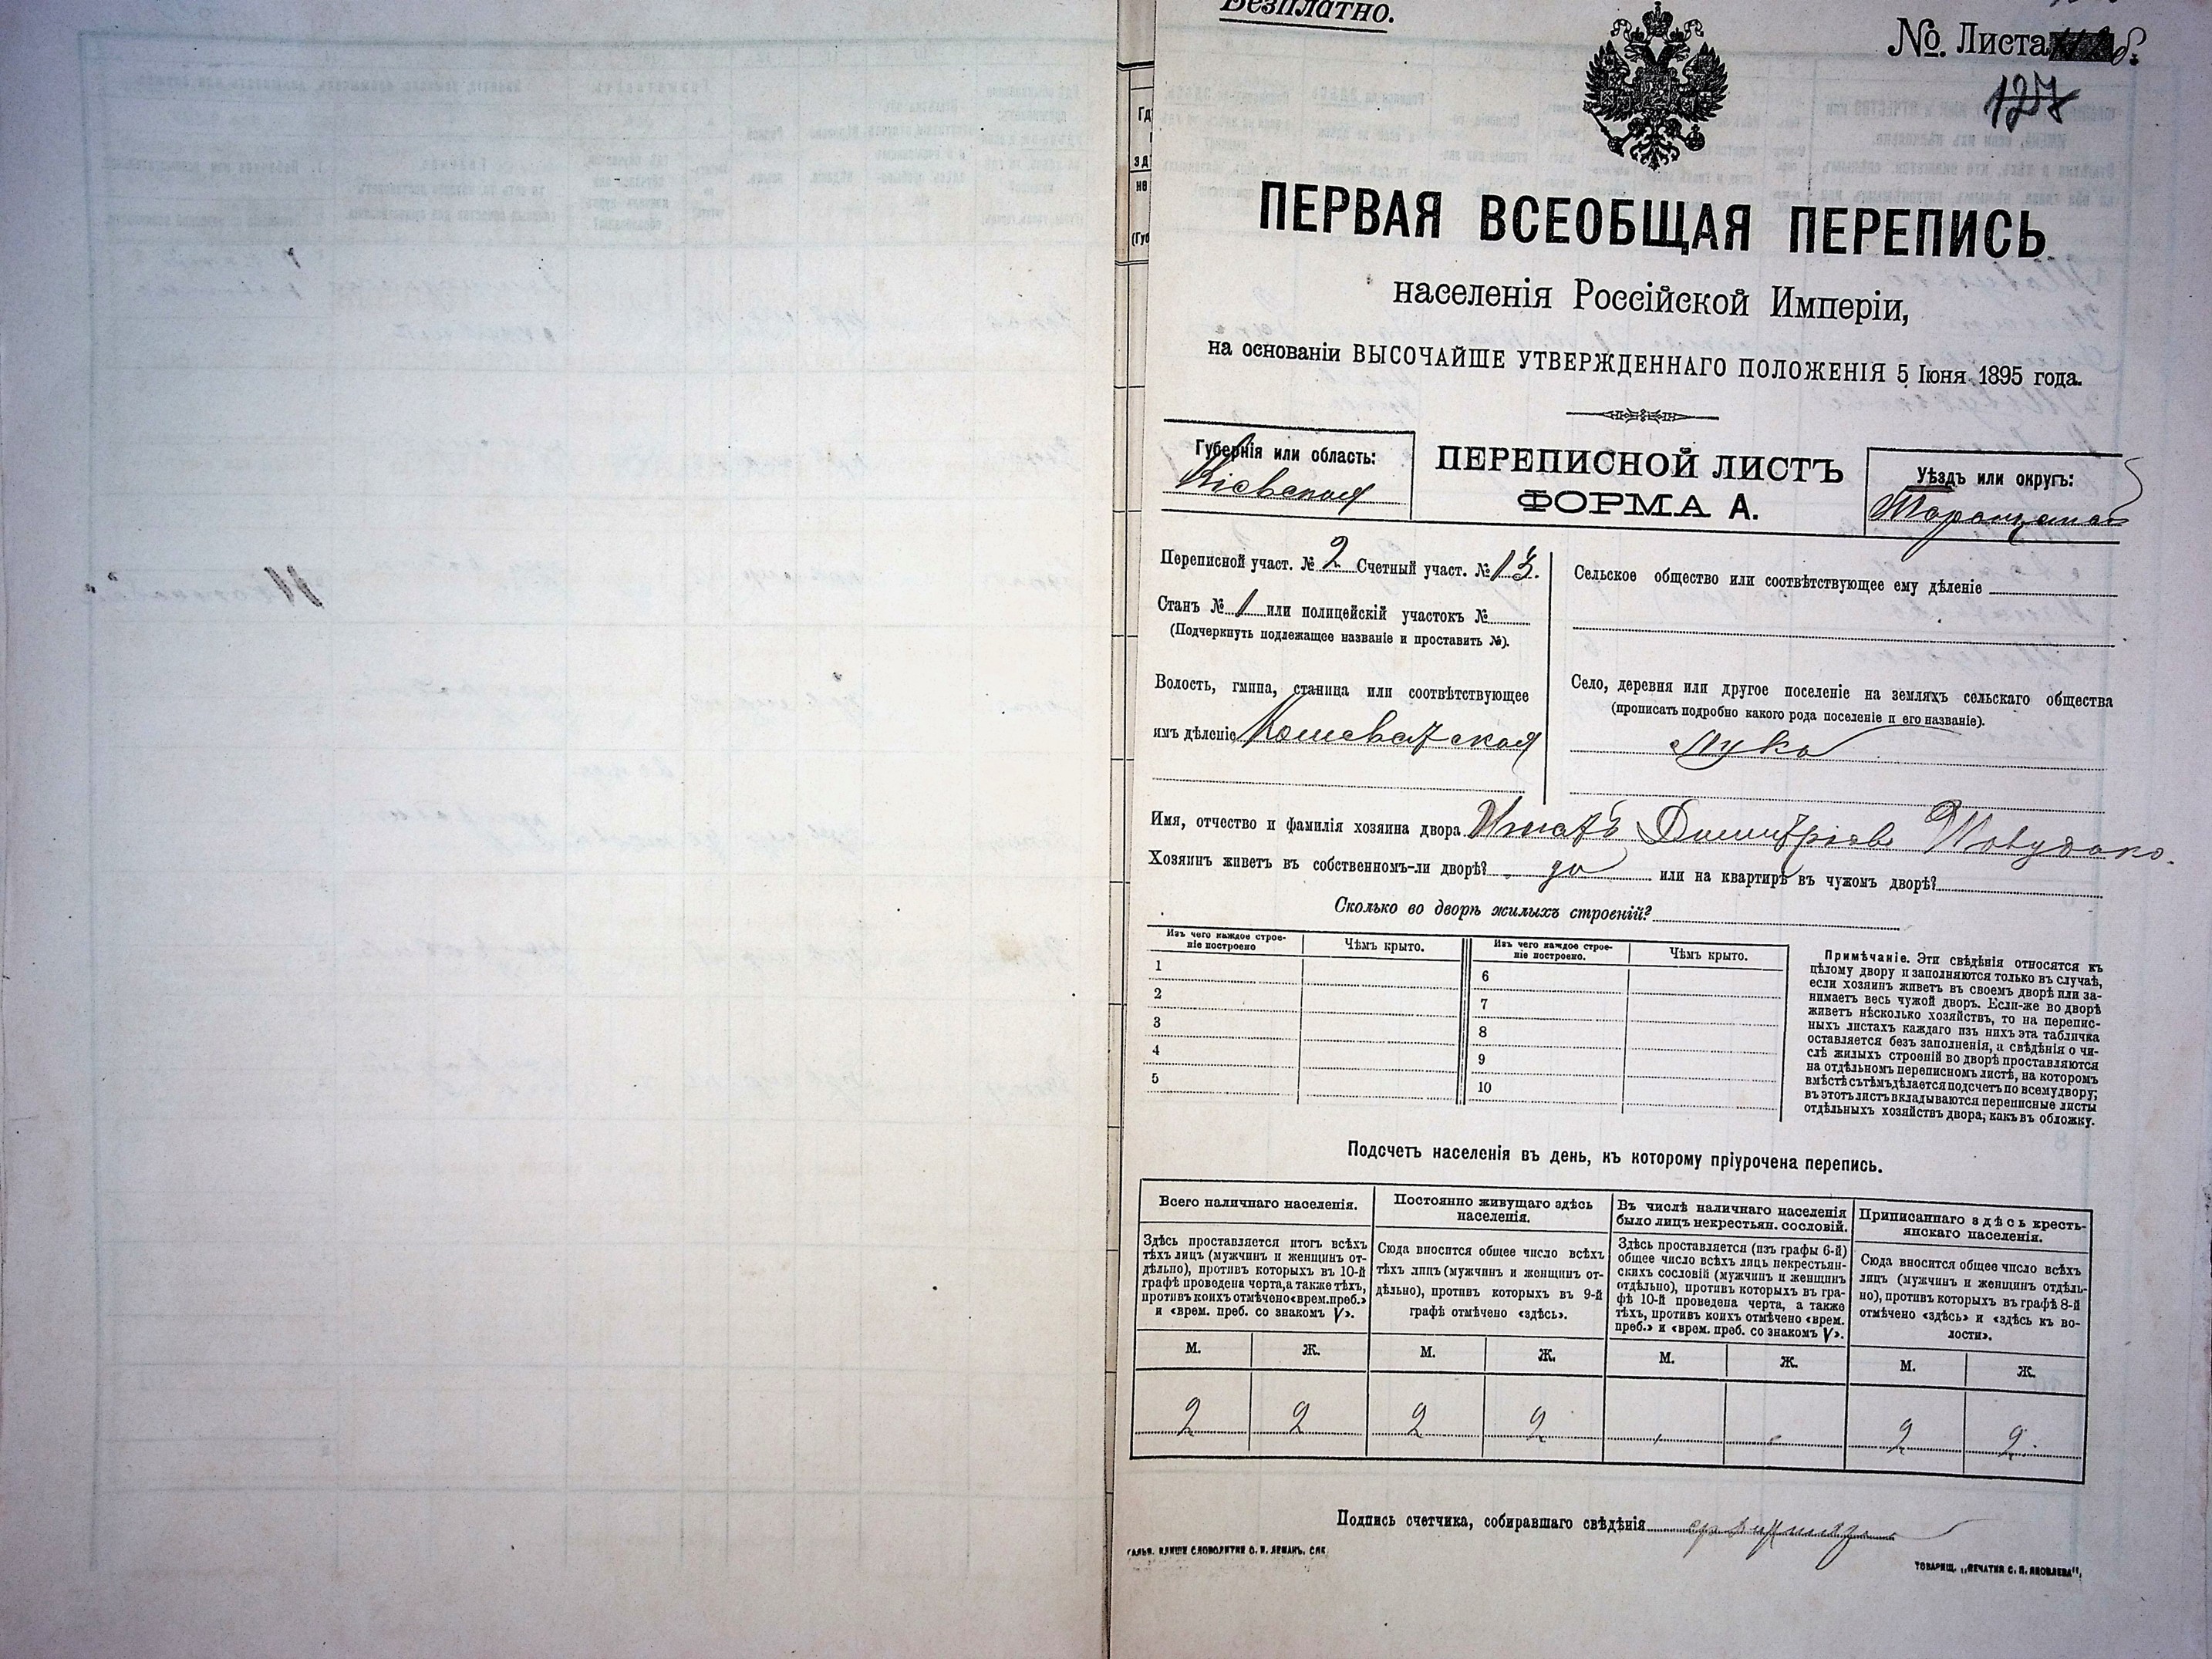 Безплатно.
№. Листа
127
ПЕРВАЯ ВСЕОБЩАЯ ПЕРЕПИСЬ
населенія Россійской Имперіи,
на основаніи ВЫСОЧАЙШЕ УТВЕРЖДЕННАГО ПОЛОЖЕНІЯ 5 Іюня 1895 года.
Губернія или область:
Кіевская
ПЕРЕПИСНОЙ ЛИСТЪ
ФОРМА А.
Уѣздъ или округъ:
Таращанскій
Переписной участ. № 2 Счетный участ. № 13.
Станъ № 1 или полицейскій участокъ №
(Подчеркнуть подлежащее названіе и проставить №).
Волость, гмина, станица или соотвѣтствующее
имъ дѣленіе Кошеватская
Сельское общество или соотвѣтствующее ему дѣленіе
Село, деревня или другое поселеніе на земляхъ сельскаго общества
(прописать подробно какого рода поселеніе и его названіе).
Лука
Имя, отчество и фамилія хозяина двора Игнатъ Димитріевъ
Хозяинъ живетъ въ собственномъ-ли дворѣ? да или на квартирѣ въ чужомъ дворѣ?
Сколько во дворѣ жилыхъ строеній?
Изъ чего каждое строе-
ніе построено
Чѣмъ крыто.
Изъ чего каждое строе-
ніе построено.
Чѣмъ крыто.
1
2
3
4
5
6
7
8
9
10
Примѣчаніе. Эти свѣдѣнія относятся къ
цѣлому двору и заполняются только въ случаѣ,
если хозяинъ живетъ въ своемъ дворѣ или за-
нимаетъ весь чужой дворъ. Если-же во дворѣ
живетъ нѣсколько хозяйствъ, то на перепис-
ныхъ листахъ каждаго изъ нихъ эта табличка
оставляется безъ заполненія, а свѣдѣнія о чи-
слѣ жилыхъ строеній во дворѣ проставляются
на отдѣльномъ переписномъ листѣ, на которомъ
вмѣстѣ съ тѣмъ дѣлается подсчетъ по всему двору;
въ этотъ листъ вкладываются переписные листы
отдѣльныхъ хозяйствъ двора, какъ въ обложку.
Подсчетъ населенія въ день, къ которому пріурочена перепись.
Всего наличнаго населенія.
Здѣсь проставляется итогъ всѣхъ
тѣхъ лицъ (мужчинъ и женщинъ от-
дѣльно), противъ которыхъ въ 10-й
графѣ проведена черта, а также тѣхъ,
противъ коихъ отмѣчено «врем. преб.»
и «врем. преб. со знакомъ V».
Постоянно живущаго здѣсь
населенія.
Сюда вносится общее число всѣхъ
тѣхъ лицъ (мужчинъ и женщинъ от-
дѣльно), противъ которыхъ въ 9-й
графѣ отмѣчено «здѣсь».
Въ числѣ наличнаго населенія
было лицъ некрестьян. сословій.
Здѣсь проставляется (изъ графы 6-й)
общее число всѣхъ лицъ некрестьян-
скихъ сословій (мужчинъ и женщинъ
отдѣльно), противъ которыхъ въ гра-
фѣ 10-й проведена черта, а также
тѣхъ, противъ коихъ отмѣчено «врем.
преб.» и «врем. преб. со знакомъ V».
Приписаннаго здѣсь кресть-
янскаго населенія.
Сюда вносится общее число всѣхъ
лицъ (мужчинъ и женщинъ отдѣль-
но), противъ которыхъ въ графѣ 8-й
отмѣчено «здѣсь» и «здѣсь къ во-
лости».
М. Ж. М. Ж. М. Ж. М. Ж.
2 2 2 2 2 2
Подпись счетчика, собиравшаго свѣдѣнія
ТОВАРИЩ. „ПЕЧАТНЯ С. П. ЯКОВЛЕВА“.